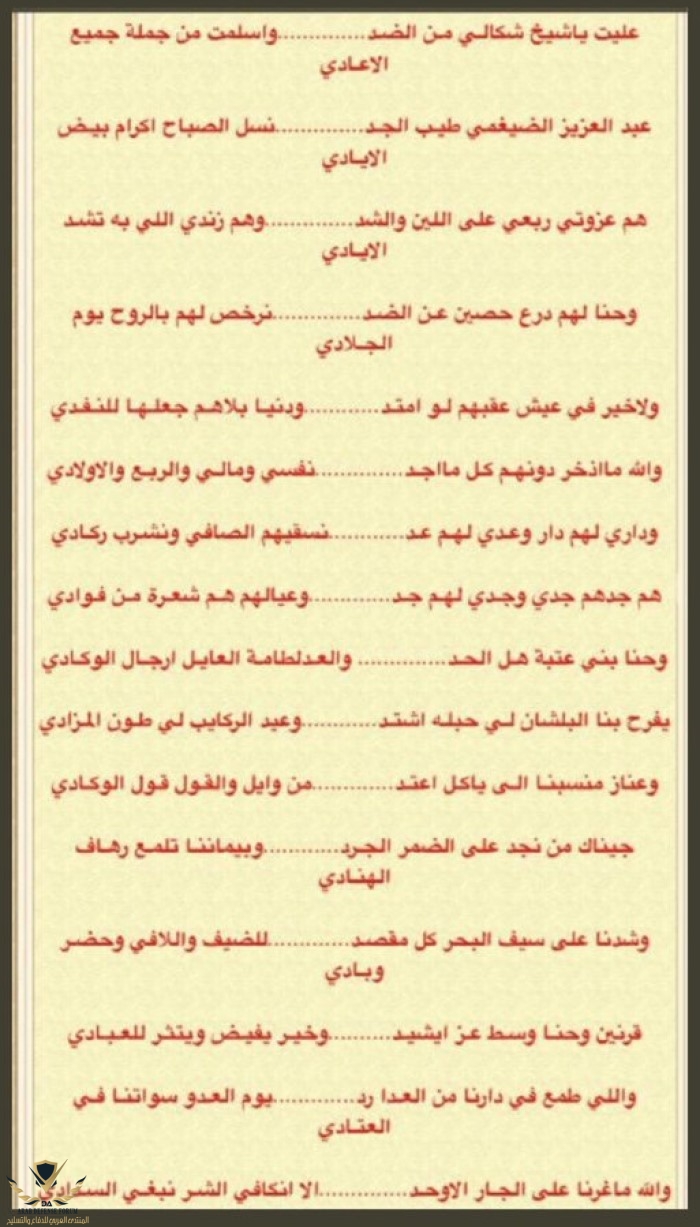 عليت ياشيخ شكالي من الضد..............واسلمت من جملة جميع
الاعادي
عبد العزيز الضيغمي طيب الجد..............نسل الصباح اكرام بيض
الايادي
هم عزوتي ربعي على اللين والشد..............وهم زندي اللي به تشد
الايادي
وحنا لهم درع حصين عن الضد..............نرخص لهم بالروح يوم
الجلادي
ولاخير في عيش عقبهم لو امتد............ودنيا بلاهم جعلها للنفدي
والله مااذخر دونهم كل مااجد..............نفسي ومالي والربع والاولادي
وداري لهم دار وعدي لهم عد............نسقيهم الصافي ونشرب ركادي
هم جدهم جدي وجدي لهم جد.............وعيالهم هم شعرة من فوادي
وحنا بني عتبة هل الحد.............. والعدلطامة العايل ارجال الوكادي
يفرح بنا البلشان لي حبله اشتد............وعيد الركايب لي طون المزادي
وعناز منسبنا الى ياكل اعتد.............من وايل والقول قول الوكادي
جيناك من نجد على الضمر الجرد............وبيماننا تلمع رهاف
الهنادي
وشدنا على سيف البحر كل مقصد.............للضيف واللافي وحضر
وبادي
قرنين وحنا وسط عز ايشيد..........وخير يفيض ويتثر للعبادي
واللي طمع في دارنا من العدا رد.............يوم العدو سواتنا في
العتادي
والله ماغرنا على الجار الاوحد..............الا انكافي الشر نبغي السدادي
DA
ARAB DEFENSE FORUM
المنتدى العربي للدفاع والتسليح